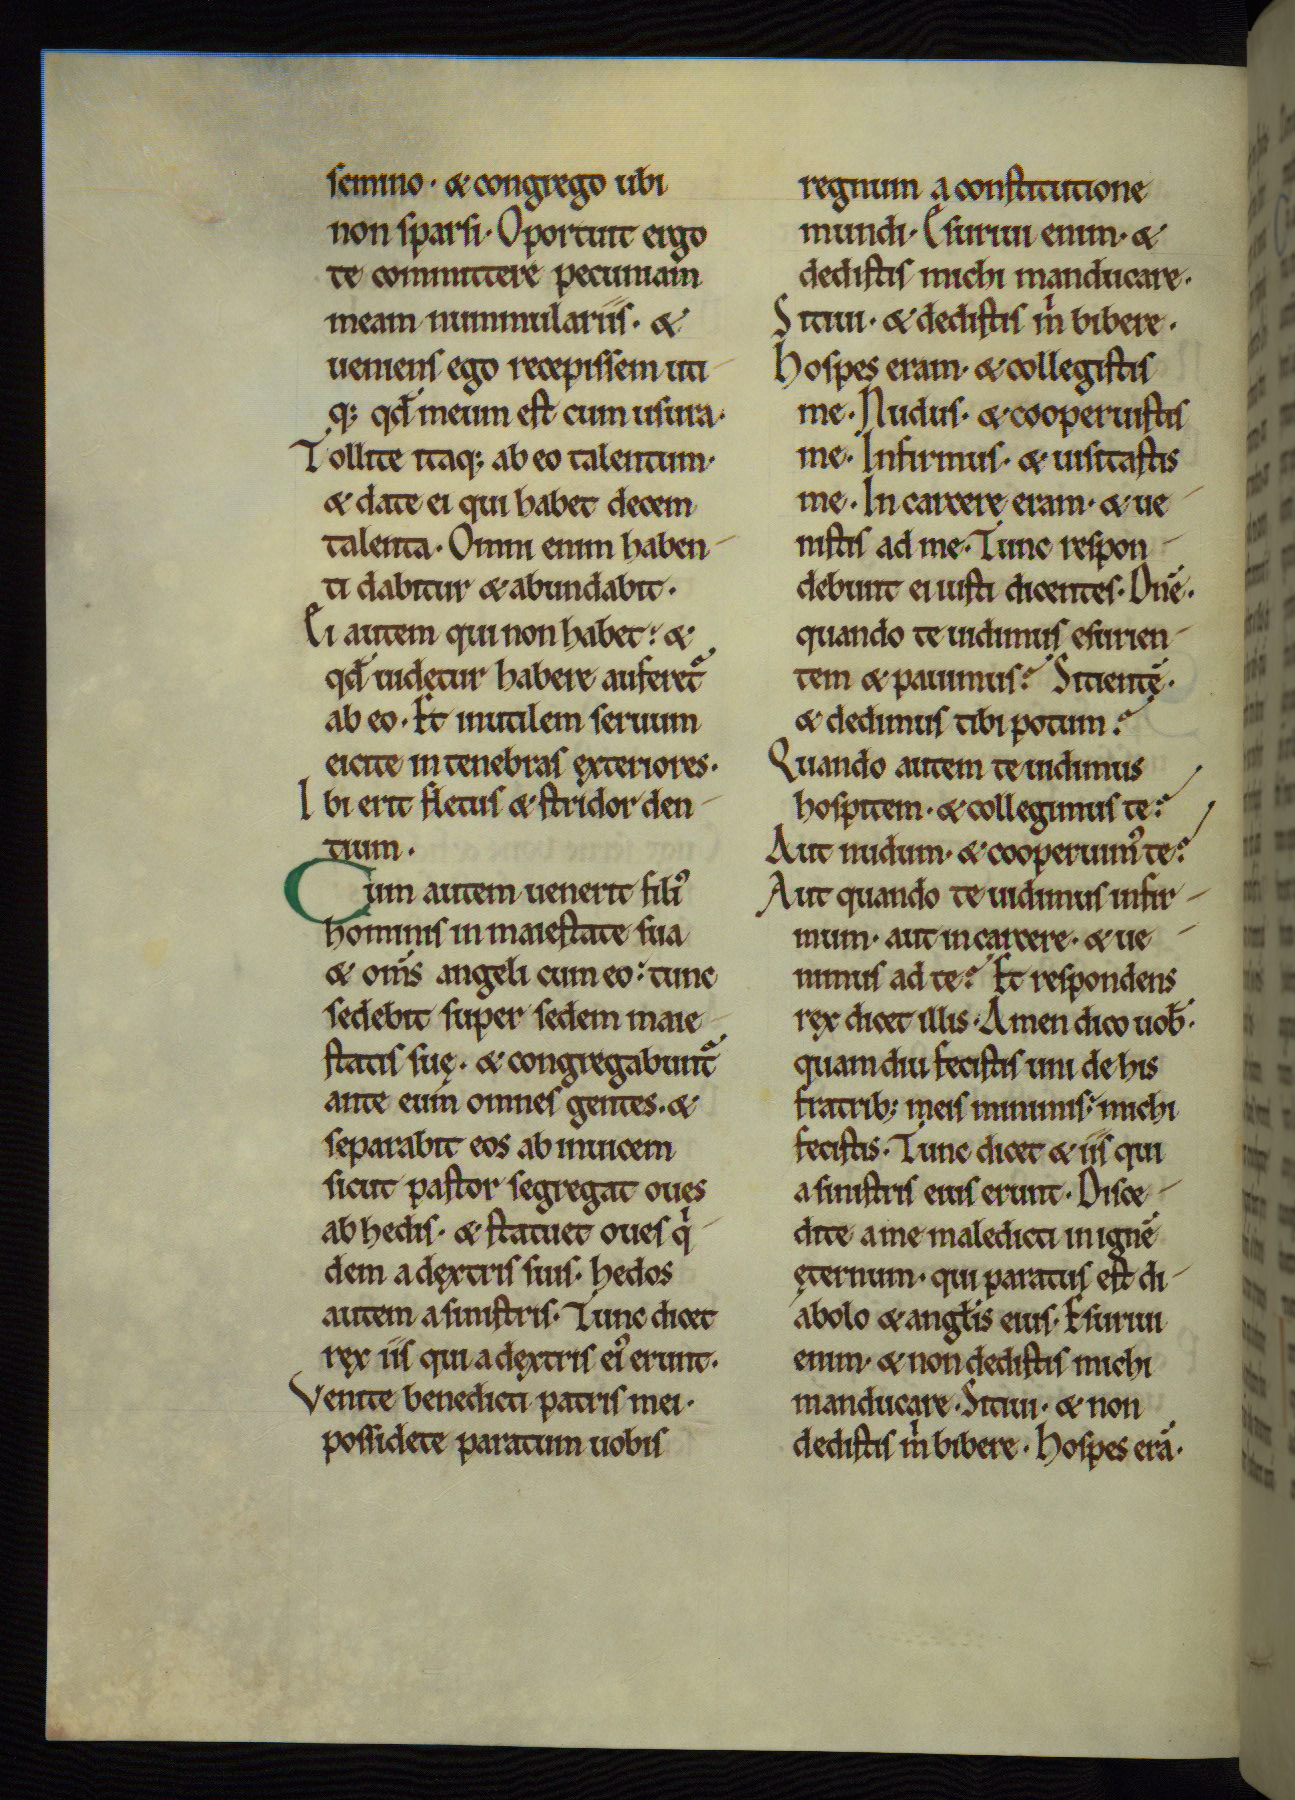 semino · & congrego ubi
non sparsi · Oportuit ergo
te committere pecuniam
meam nummulariis · &
ueniens ego recepissem uti-
q; qđ meum est cum usura ·
Tollite itaq; ab eo talentum ·
& date ei qui habet decem
talenta · Omni enim haben-
ti dabitur & abundabit ·
Ei autem qui non habet : &
qđ uidetur habere auferet᷑
ab eo · Et inutilem seruum
eicite in tenebras exteriores ·
Ibi erit fletus & stridor den-
tium ·
Cum autem uenerit fili᷒
hominis in maiestate sua
& om̄s angeli cum eo : tunc
sedebit super sedem maie-
statis suę · & congregabunt᷑
ante eum omnes gentes · &
separabit eos ab inuicem
sicut pastor segregat oues
ab hedis · & statuet oues qͥ-
dem a dextris suis · hedos
autem a sinistris · Tunc dicet
rex iis qui a dextris ei᷒ erunt ·
Venite benedicti patris mei ·
possidete paratum uobis
regnum a constitutione
mundi · Esuriui enim · &
dedistis michi manducare ·
Sitiui · & dedistis mͥ bibere ·
Hospes eram · & collegistis
me · Nudus · & cooperuistis
me · Infirmus · & uisitastis
me · In carcere eram · & ue-
nistis ad me · Tunc respon-
debunt ei iusti dicentes · Dn̄e ·
quando te uidimus esurien-
tem & pauimus? Sitientē ·
& dedimus tibi potum?
Quando autem te uidimus
hospitem · & collegimus te?
Aut nudum · & cooperuim᷒ te?
Aut quando te uidimus infir-
mum · aut in carcere · & ue-
nimus ad te? Et respondens
rex dicet illis · Amen dico uob̄ ·
quam diu fecistis uni de his
fratrib; meis minimis : michi
fecistis · Tunc dicet & iis qui
a sinistris eius erunt · Disce-
dite a me maledicti in ignē
ęternum · qui paratus est di-
abolo & angl̄is eius · Esuriui
enim · & non dedistis michi
manducare · Sitiui · & non
dedistis mͥ bibere · Hospes erā ·